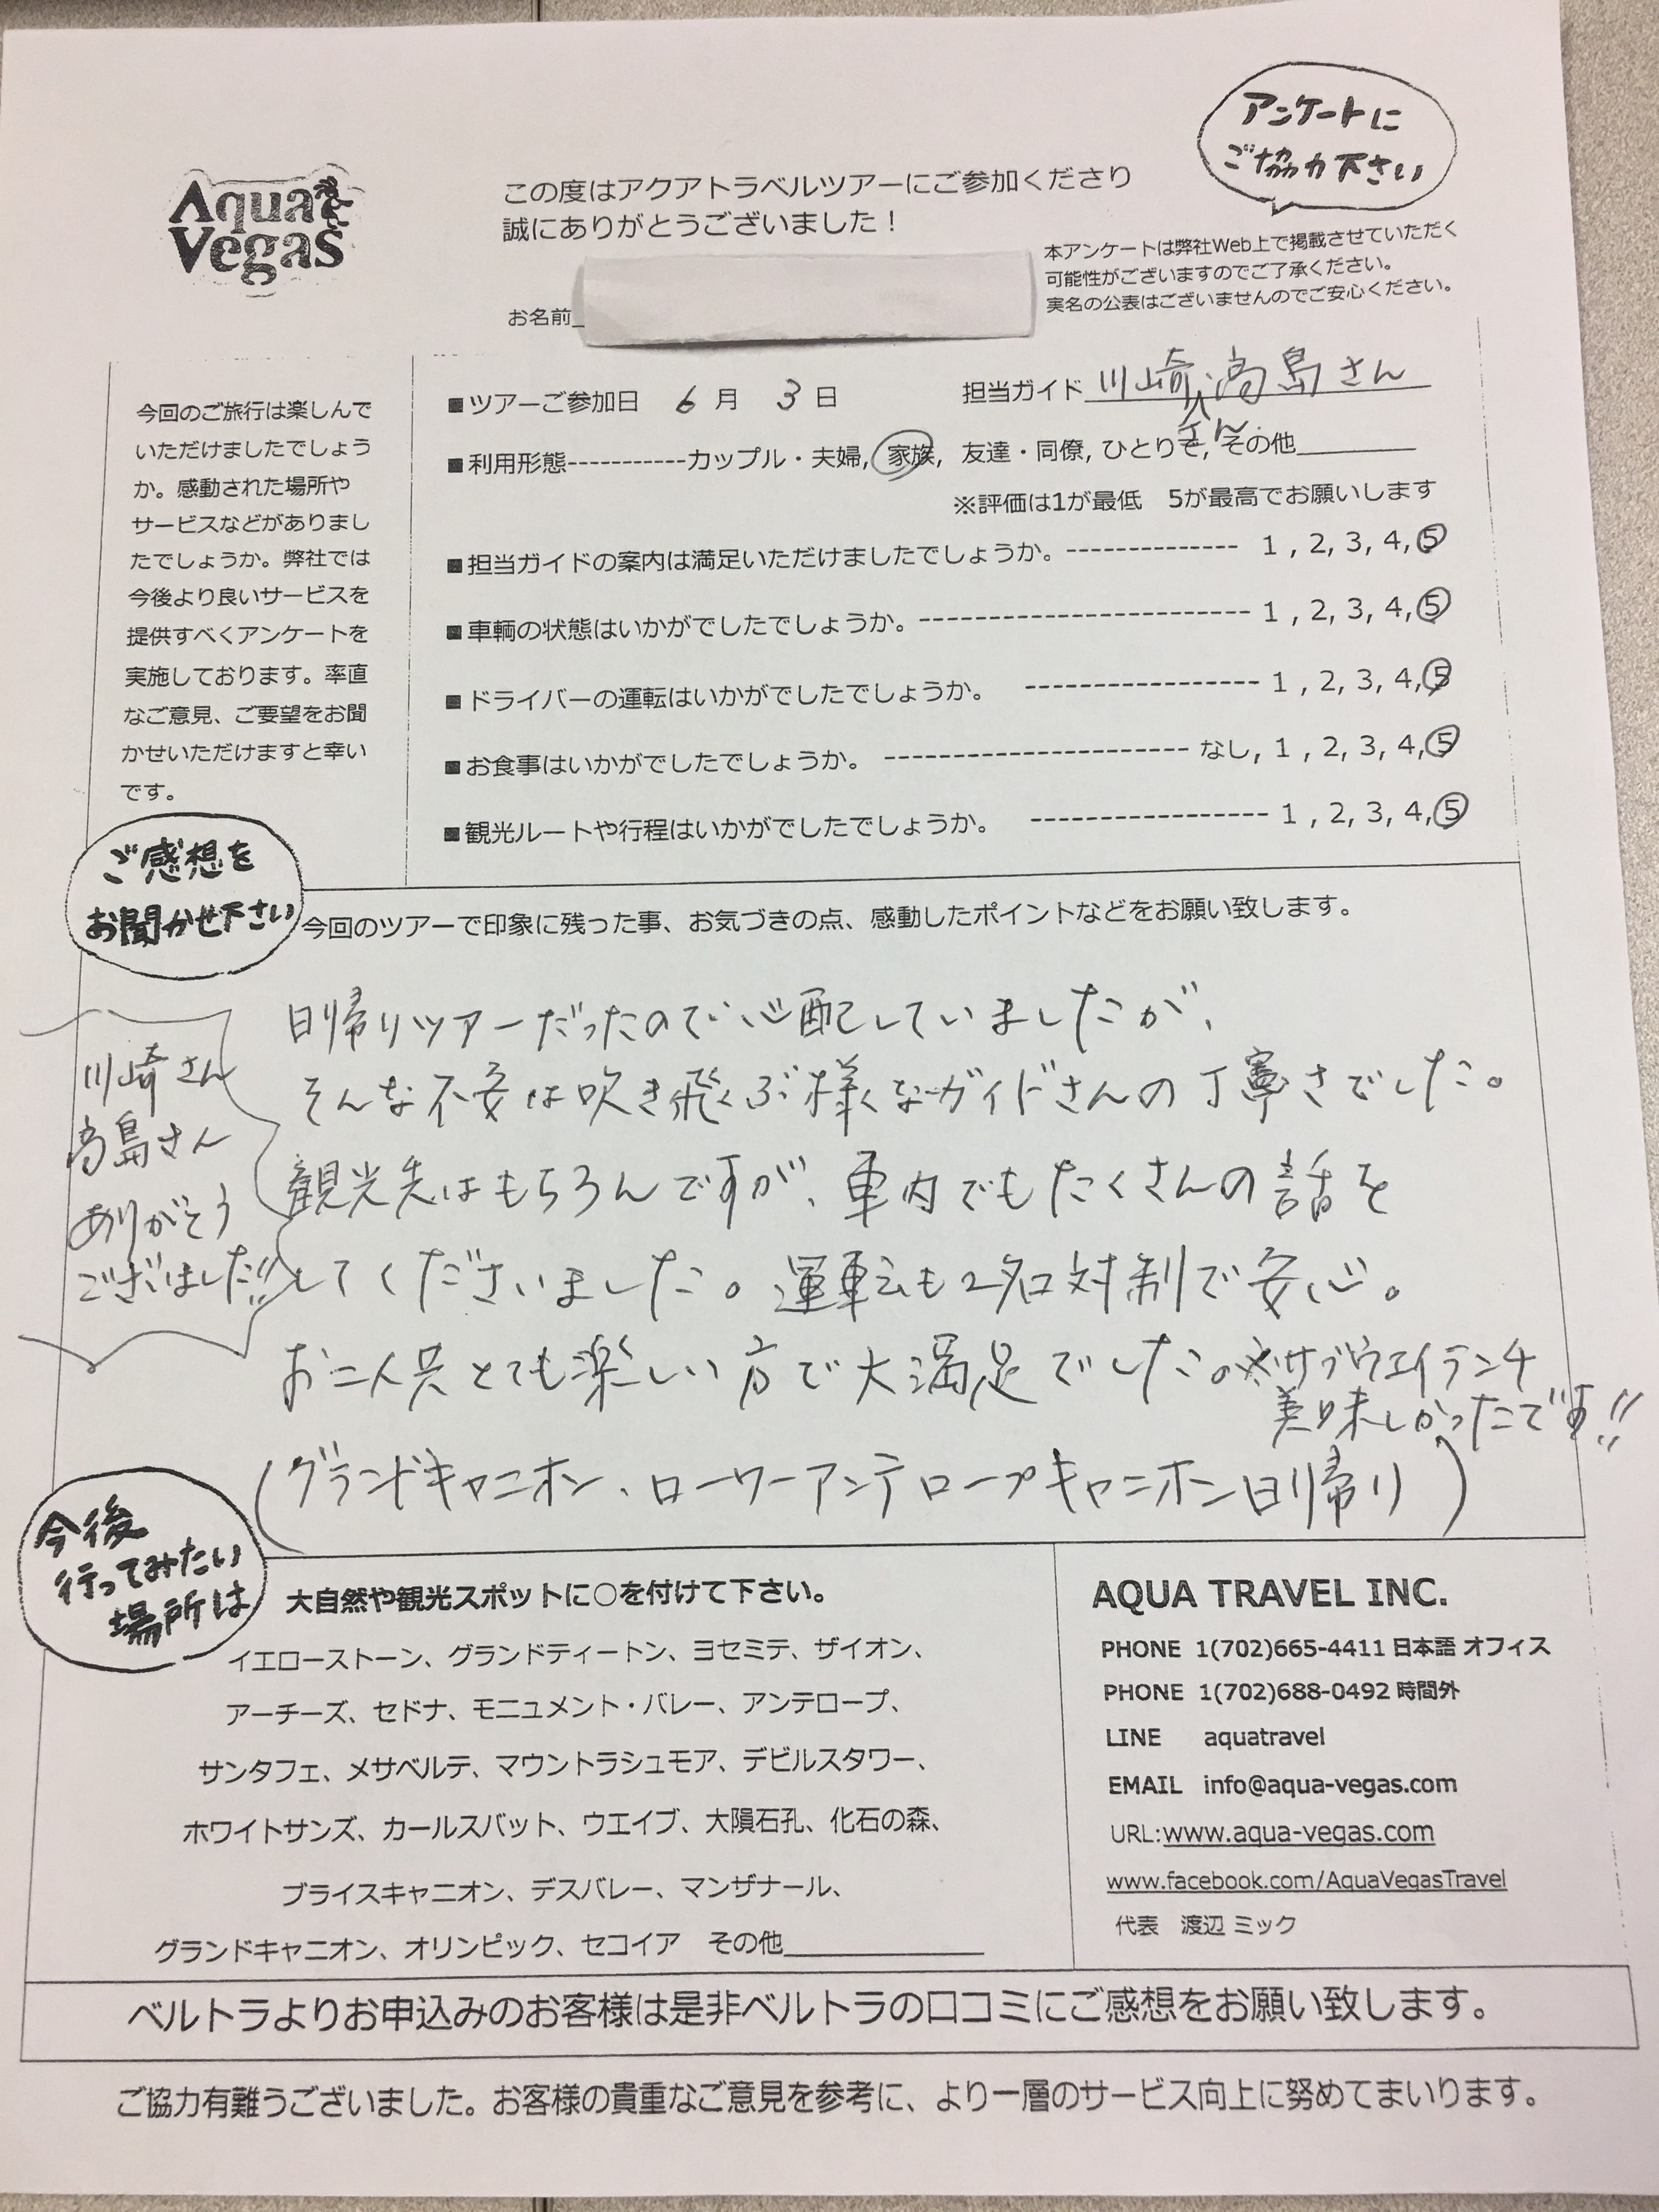 アンケートに
ご協力下さい
Aqua
Vegas
この度はアクアトラベルツアーにご参加くださり
誠にありがとうございました！
本アンケートは弊社Web上で掲載させていただく
可能性がございますのでご了承ください。
実名の公表はございませんのでご安心ください。
お名前
今回のご旅行は楽しんで
いただけましたでしょう
か。感動された場所や
サービスなどがありまし
たでしょうか。弊社では
今後より良いサービスを
提供すべくアンケートを
実施しております。率直
なご意見、ご要望をお聞
かせいただけますと幸い
です。
■ツアーご参加日 6 月 3 日 担当ガイド 川崎さん、高島さん
■利用形態-----------カップル・夫婦, 家族, 友達・同僚, ひとりで, その他
※評価は1が最低 5が最高でお願いします
■担当ガイドの案内は満足いただけましたでしょうか。-------------- 1 , 2, 3, 4, 5
■車輌の状態はいかがでしたでしょうか。--------------------------- 1 , 2, 3, 4, 5
■ドライバーの運転はいかがでしたでしょうか。 ------------------- 1 , 2, 3, 4, 5
■お食事はいかがでしたでしょうか。 ------------------------- なし, 1 , 2, 3, 4, 5
■観光ルートや行程はいかがでしたでしょうか。 ------------------- 1 , 2, 3, 4, 5
ご感想を
お聞かせ下さい
今回のツアーで印象に残った事、お気づきの点、感動したポイントなどをお願い致します。
日帰りツアーだったので心配していましたが、
そんな不安は吹き飛ぶ様なガイドさんの丁寧さでした。
観光先はもちろんですが、車内でもたくさんの話を
してくださいました。運転も2名対制で安心。
お二人共とても楽しい方で大満足でした。※サブウエイランチ
美味しかったです!!
(グランドキャニオン、ローワーアンテロープキャニオン日帰り)
川崎さん
高島さん
ありがとう
ございました!!
今後
行ってみたい
場所は
大自然や観光スポットに○を付けて下さい。
イエローストーン、グランドティートン、ヨセミテ、ザイオン、
アーチーズ、セドナ、モニュメント・バレー、アンテロープ、
サンタフェ、メサベルテ、マウントラシュモア、デビルスタワー、
ホワイトサンズ、カールスバット、ウエイブ、大隕石孔、化石の森、
ブライスキャニオン、デスバレー、マンザナール、
グランドキャニオン、オリンピック、セコイア その他
AQUA TRAVEL INC.
PHONE 1(702)665-4411 日本語 オフィス
PHONE 1(702)688-0492 時間外
LINE aquatravel
EMAIL info@aqua-vegas.com
URL:www.aqua-vegas.com
www.facebook.com/AquaVegasTravel
代表 渡辺 ミック
ベルトラよりお申込みのお客様は是非ベルトラの口コミにご感想をお願い致します。
ご協力有難うございました。お客様の貴重なご意見を参考に、より一層のサービス向上に努めてまいります。